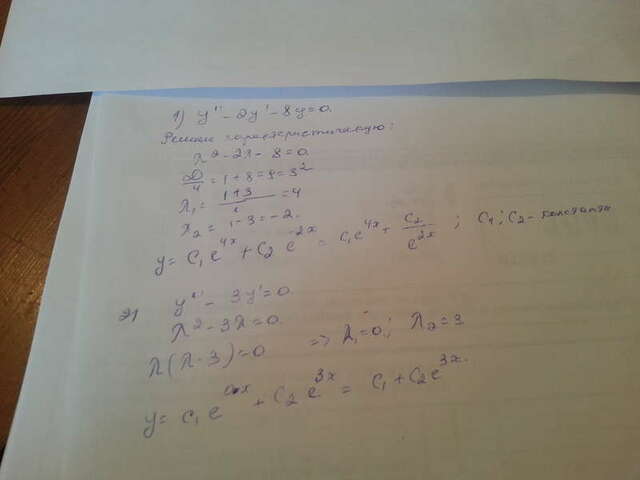 1) y'' - 2y' - 8y = 0.
Решим характеристическую:
λ² - 2λ - 8 = 0.
D/4 = 1 + 8 = 9 = 3²
λ₁ = (1+3)/1 = 4
λ₂ = 1 - 3 = -2.
y = C₁e^{4x} + C₂e^{-2x} = C₁e^{4x} + C₂/e^{2x} ; C₁; C₂ - константа
2) y'' - 3y' = 0.
λ² - 3λ = 0.
λ(λ - 3) = 0 => λ₁ = 0; λ₂ = 3
y = C₁e^{0·x} + C₂e^{3x} = C₁ + C₂e^{3x}.